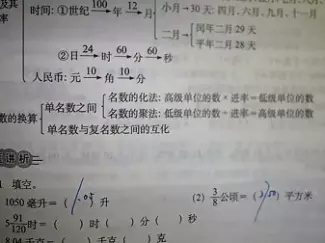 及其
率
时间:①世纪 100 年 12 月
小月→30天:四月、六月、九月、十一月
二月→
闰年二月29天
平年二月28天
②日 24 时 60 分 60 秒
人民币:元 10 角 10 分
数的换算
单名数之间
名数的化法:高级单位的数×进率=低级单位的数
名数的聚法:低级单位的数÷进率=高级单位的数
单名数与复名数之间的互化
讲析
填空。
1050毫升=( )升
(2) 3/8公顷=( )平方米
5 91/120时=( )时( )分( )秒
8.04千克=( )千克( )克